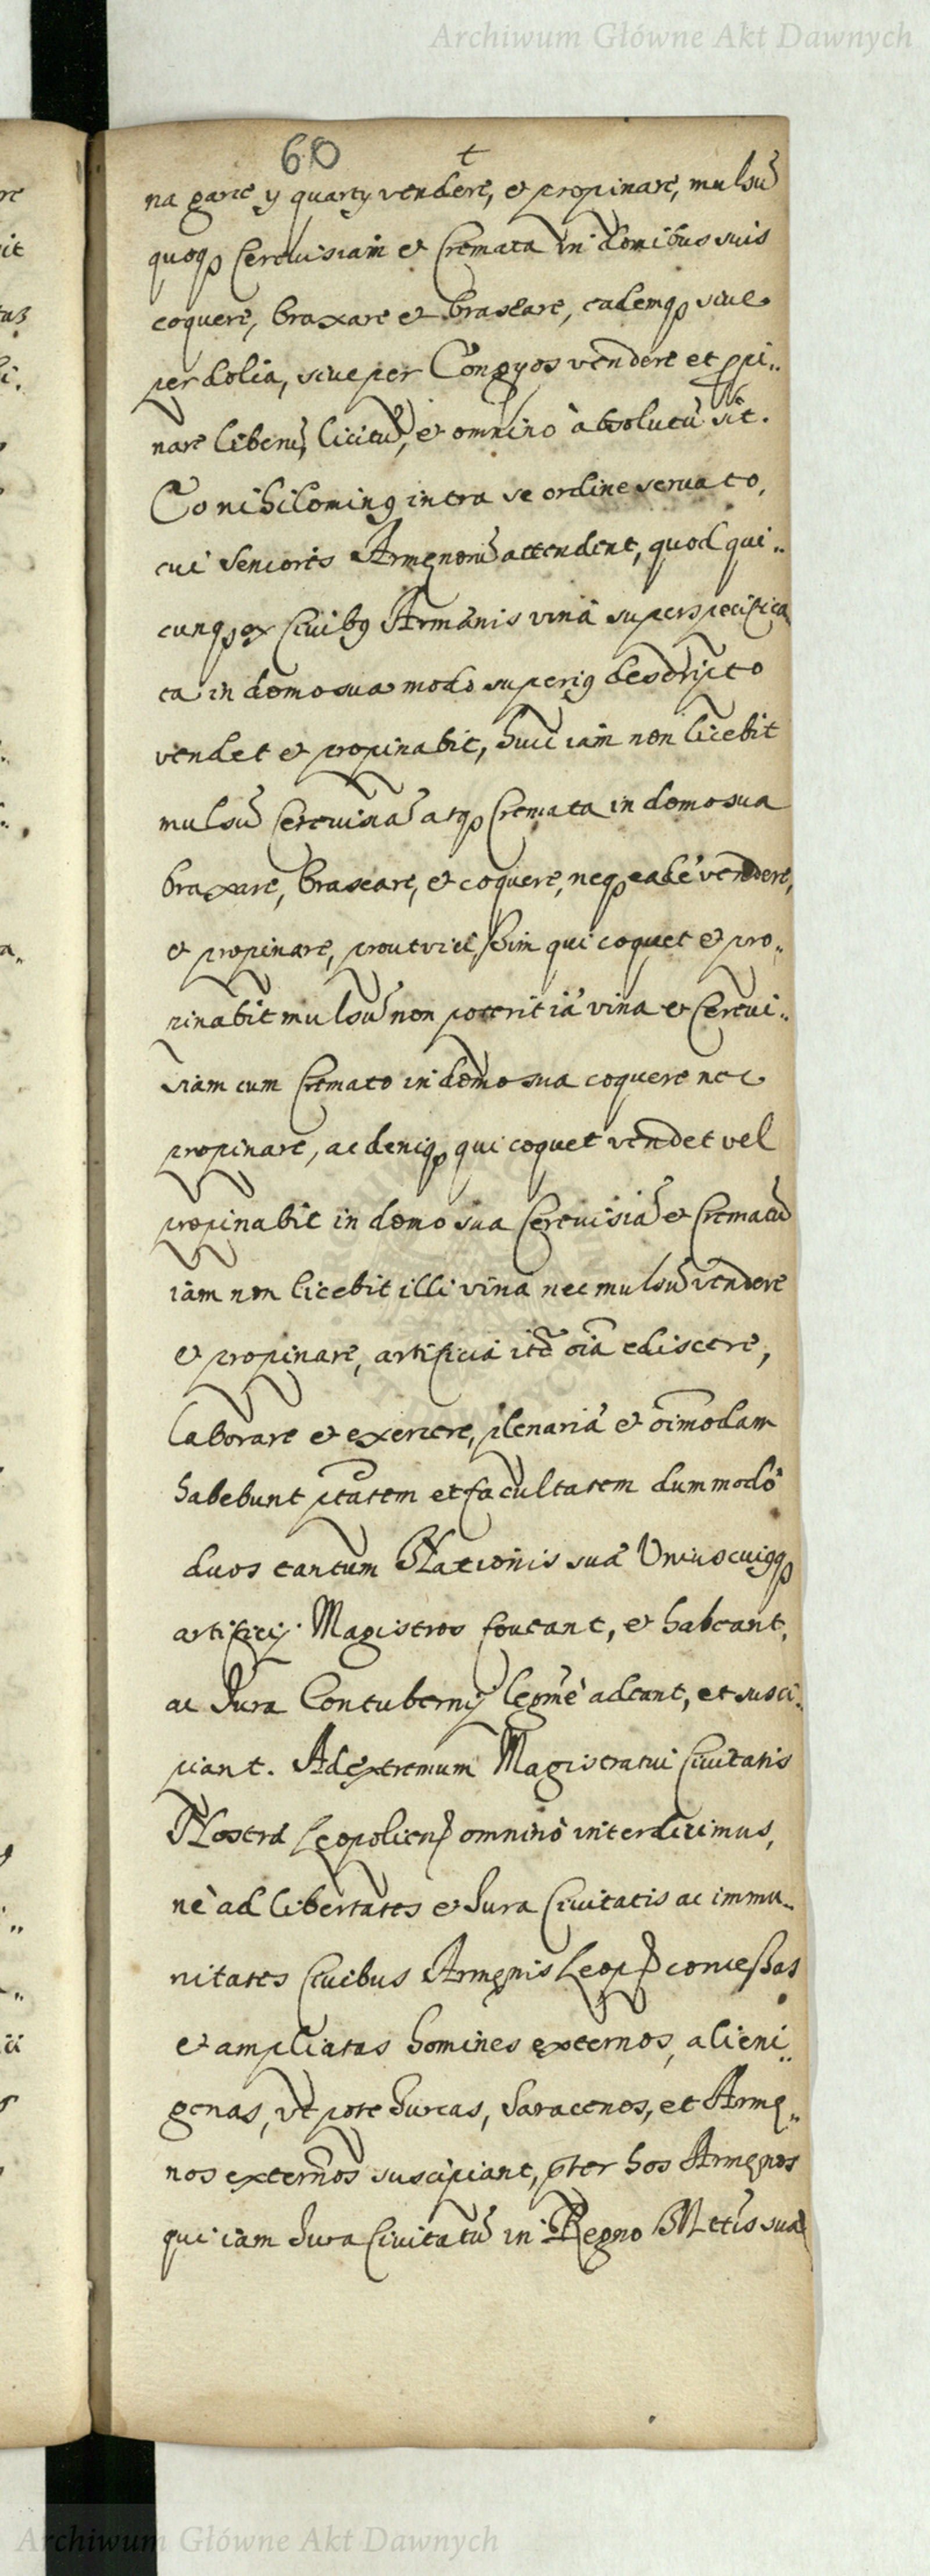 Archiwum Główne Akt Dawnych
60
na garce y quarty vendere, et propinare, mulsũ
quoqꝫ Cereuisiam et Cremata in domibus suis
coquere, braxare et braseare, eademqꝫ siue
per dolia, siue per Congyos vendere et ꝓpi„
nare liberũ, licitũ, et omninò absolutũ sit.
Eo nihilominꝰ intra se ordine seruato,
cui Seniores Armęnorũ attendent, quod qui„
cunqꝫ ex Ciuibꝰ Armænis vina superspecifica
ta in domo sua modo superiꝰ descripto
vendet et propinabit, huic iam non licebit
mulsũ Cereuisiã atqꝫ Cremata in domo sua
braxare, braseare, et coquere, neqꝫ eadẽ vendere,
et propinare, prout viciſsim qui coquet et pro„
pinabit mulsũ non poterit iã vina et Cereui„
siam cum Cremato in domo sua coquere nec
propinare, ac deniqꝫ qui coquet vendet vel
propinabit in domo sua Cereuisiã et Crematũ
iam non licebit illi vina nec mulsũ vendere
et propinare, artificia itẽ oĩa ediscere,
laborare et exercere, plenariã et oĩmodam
habebunt ptãtem et facultatem dummodò
duos tantum Nationis suæ Vniuscuiqꝫ
artificij Magistros foueant, et habeant,
ac Jura Contubernij legmẽ adeant, et susci„
piant. Ad extremum Magistratui Ciuitatis
Nostræ Leopolien̄ omninò interdicimus,
nè ad libertates et Jura Ciuitatis ac immu„
nitates Ciuibus Armęnis Leop̄ conceſsas
et ampliatas homines externos, alieni„
genas, vt pote Turcas, Saracenos, et Armę„
nos externos suscipiant, p̃ter hos Armęnos
qui iam Jura Ciuitatũ in Regno Mttis suæ
Archiwum Główne Akt Dawnych